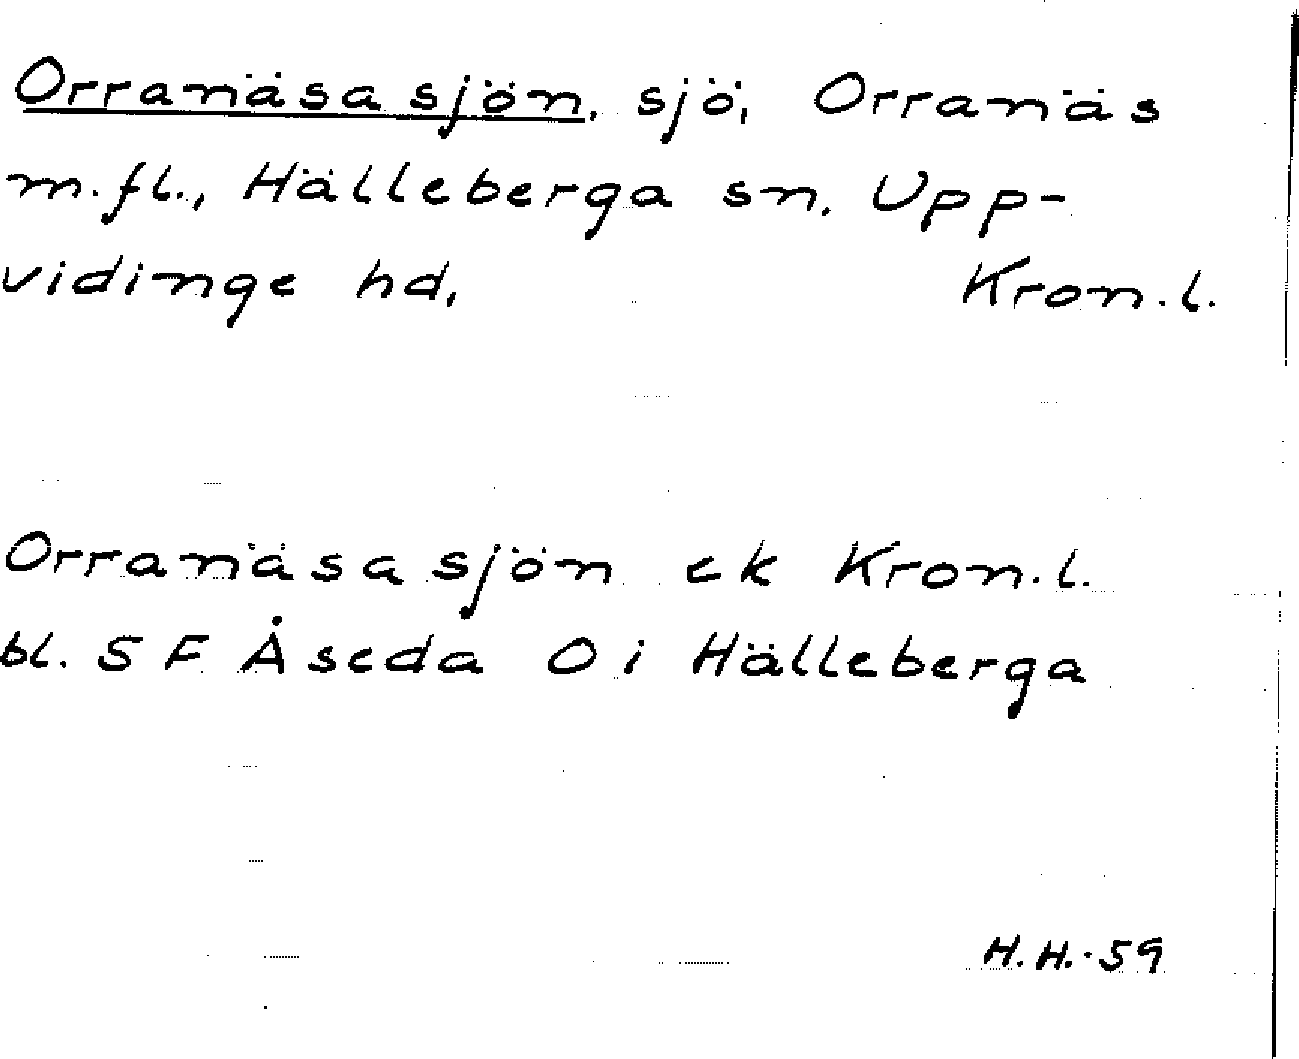 Orranäsasjön, sjö, Orranäs
m.fl., Hälleberga sn. Upp-
vidinge hd, Kron.l.
Orranäsasjön ek Kron.l.
bl. 5 F Åseda O i Hälleberga
H.H.-59